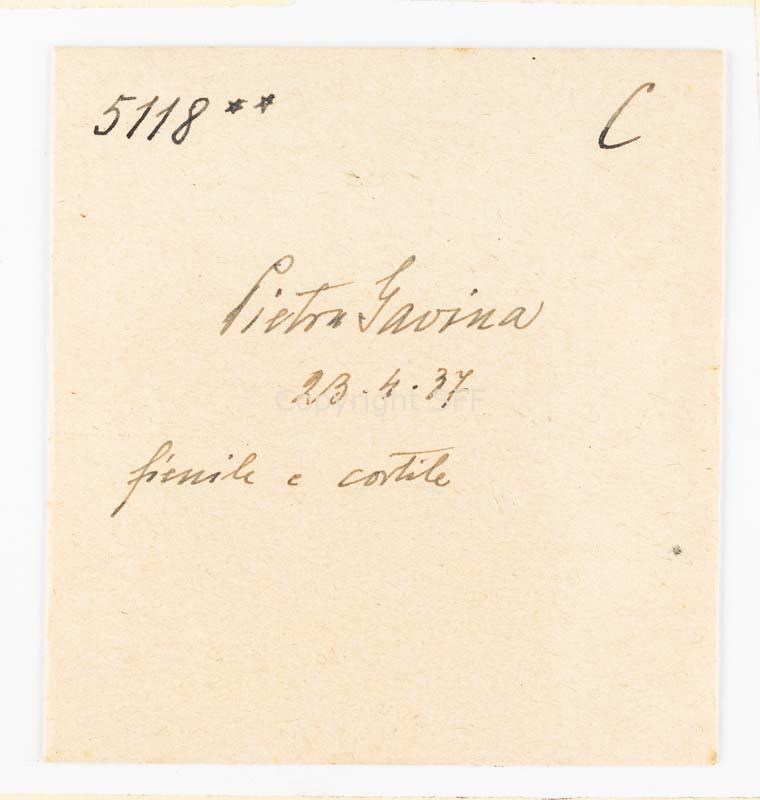 5118 **
C
Pietra Gavina
23.4.37
Copyright SFF
fienile e cortile